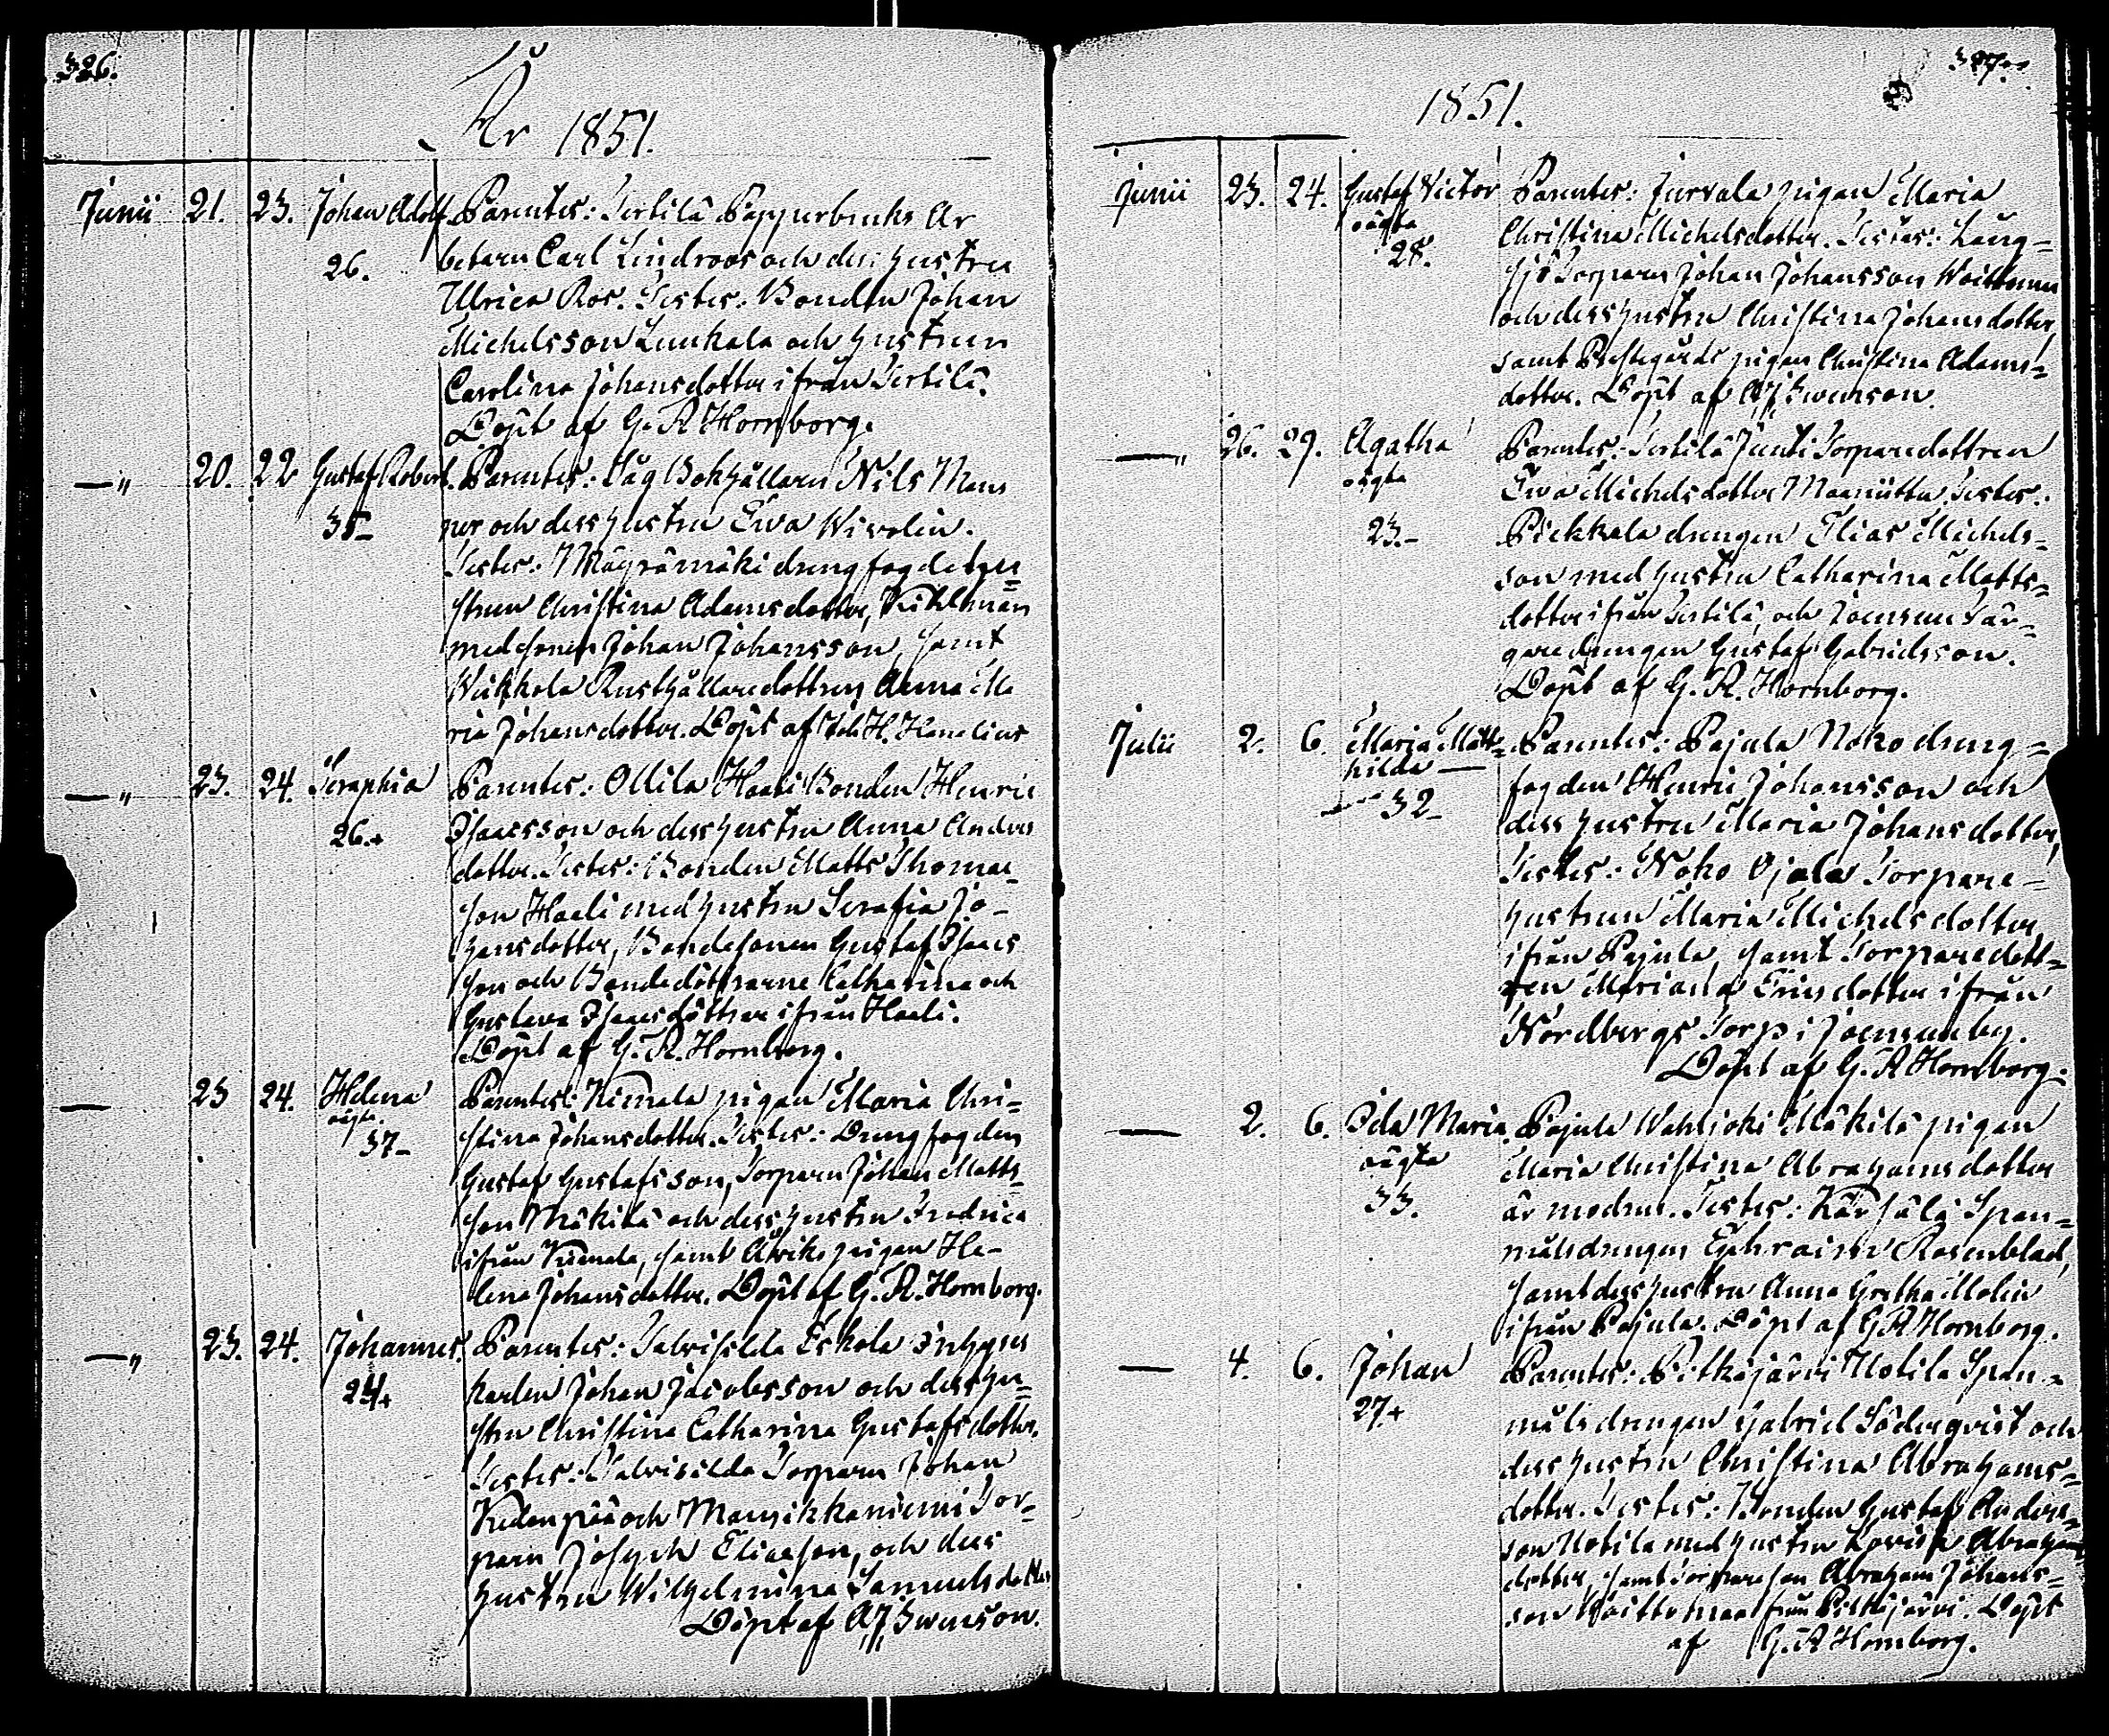 326.
År 1851.
Junii 21. 23. Johan Adolf Parentes: Tertilä Pappersbruks Ar
26. betarn Carl Lindroos och dess hustru
Ulrica Ros. Testes: Bonden Johan
Michelsson Luukala och hustrun
Carolina Johansdotter ifrån Tertilä.
Döpt af G. R Hornborg.
—„ 20. 22 Gustaf Robert. Parentes: Såg Bokhållaren Nils Mans
35— ner och dess hustru Ewa Wivolin.
Testes: Mäyrämäki drengfogdehu=
strun Christina Adamsdotter, Kihlman
med sonen Johan Johansson, samt
Rusthållaredottren Anna Ma
ria Johansdotter. Döpt af Joh. H. Konelius
—„ 23. 24. Seraphia Parentes: Ollila Haali Bonden Henric
26.+ Isaacsson och dess hustru Anna Anders
dotter. Testes: Bonden Matts Thomas
son Haali med hustru Serafia Jo-
hansdotter, Bondesonen Gustaf Isaacs
son och Bondedöttrarne Catharina och
Gustava Isaacsdöttrar ifrån Haali.
Döpt af G. R. Hornborg.
— 23 24. Helena Parentes: Kimala pigan Maria Chri=
oägta. stina Johansdotter. Testes: Drengfogden
37— Gustaf Gustafsson, Torparn Johan Matts=
son Mäkilä och dess hustru Fredrica
ifrån Kimala, samt pigan He-
lena Johansdotter. Döpt af G. R. Hornborg.
—„ 23. 24. Johannes. Parentes: Talvisilda Eskola Inhyses
24+ karlen Johan Jacobsson och dess hu=
stru Christina Catharina Gustafsdotter.
Testes: Talvisilda Torparen Johan
Kedonpää och Mansikkaniemi Tor=
parn Joseph Eliasson, och dess
hustru Wilhelmina Samuelsdotter
Döpt af AJ Swenson.
327.
1851.
Junii 23. 24. Gustaf Victor Parentes: Jurvala pigan Maria
oägta Christina Michelsdotter. Testes: Lång=
28. sjö Torparen Johan Johansson Woittinen
och dess hustru Christina Johansdotter,
samt Prestegårds pigan Christina Adams=
dotter. Döpt af AJ Swenson.
—„ 26. 29. Agatha Parentes: Tertilä Junti Torparedottren
oägta Ewa Michelsdotter Testes:
23.- Pickkala drengen Elias Michels=
son med hustru Catharina Matts=
dotter ifrån Tertilä, och Joensuu Får=
garedrengen Gustaf Gabrielsson.
Döpt af G. R. Hornborg.
Julii 2. 6. Maria Matt= Parentes: Pajula Noko dreng=
hilda — fogden Henric Johansson och
32- dess hustru Maria Johansdotter,
Testes: Noko Ojala Torpare=
hustrun Maria Michelsdotter
ifrån Pajula, samt Torparedott=
ren Mariana Ericsdotter ifrån
Nordbergs Torp i Joensuu by.
Döpt af G. R Hornborg.
— 2. 6. Ida Maria. Pajula Wahljoki Mäkilä pigan
oägta Maria Christina Abrahamsdotter
33. är modren. Testes: Kärsälä Span=
målsdrengen Ephraim Rosenblad,
samt dess hustru Anna Gretha Molin
ifrån Pajula. Döpt af G R Hornborg.
— 4. 6. Johan Parentes: Pitkäjärvi Uotila Span=
27+ målsdrengen Gabriel Söderqvist och
dess hustru Christina Abrahams=
dotter. Testes: Bonden Gustaf Anders=
son Uotila med hustru Lovisa Abrahams
dotter, samt Torpareson Abraham Johans=
son från Pitkäjärvi. Döpt
af G. R Hornborg.